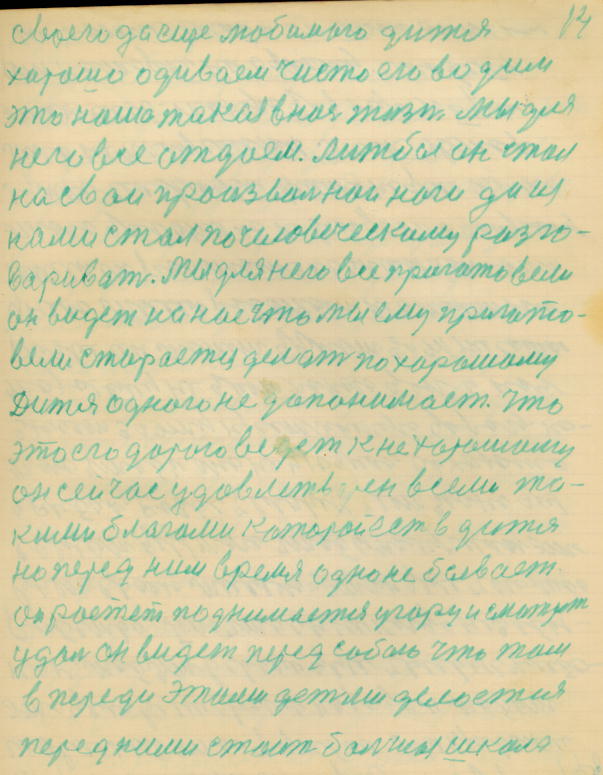 14
своего да еще любимого дитя
хорошо одиваем чисто его водим
это наша такая в ная жизн. Мы для
него все отдаем. Лиж бы он стал
на свои произволной ноги да из
нами стал по человеческому разго-
вариват. Мы для него все приготовели
он видет на нас что мы ему пригото-
вели стараетц делат по хорошому
Дитя одного не допонимает. что
это его дорого ведет к не хорошому
он сейчас удовлетворен всеми та-
кими благами каторой ест в дитя
но перед ним время одно не бывает.
он ростет поднимается угору и смотрит
удал он видет перед собою что там
в переди этими детями
перед ними стоит болшая школа